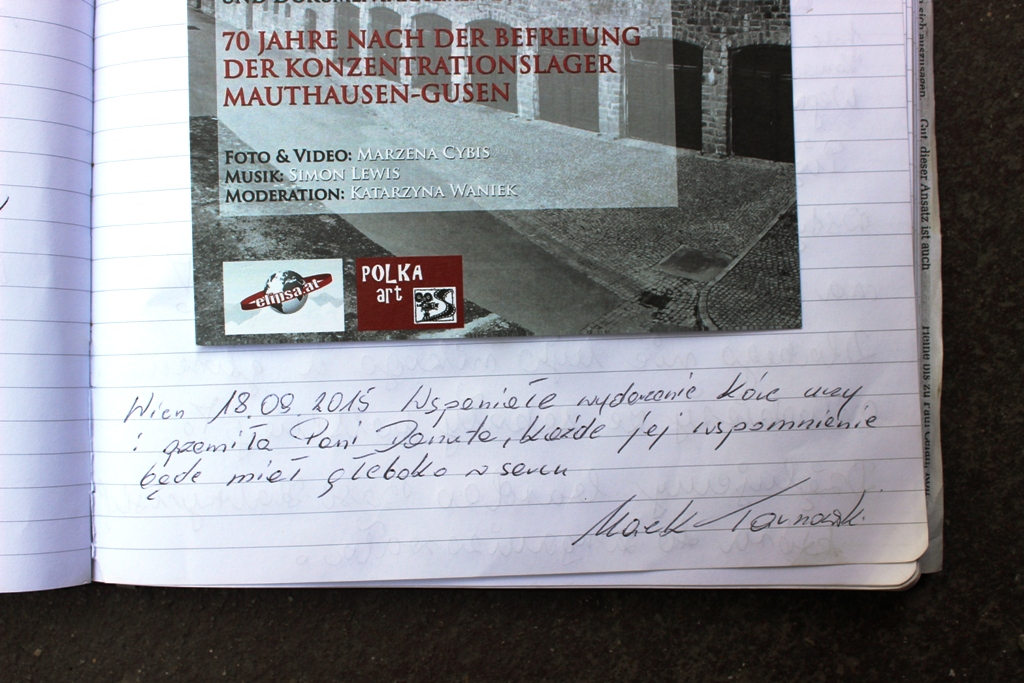 70 JAHRE NACH DER BEFREIUNG
DER KONZENTRATIONSLAGER
MAUTHAUSEN-GUSEN
FOTO & VIDEO: MARZENA CYBIS
MUSIK: SIMON LEWIS
MODERATION: KATARZYNA WANIEK
elipsa.at
POLKA
art
Wien 18.09.2015 Wspaniałe wydarzenie które uczy
i przemiła Pani Danuta, każde jej wspomnienie
będę miał głęboko w sercu
Marek Tarnowski
Gut, dieser Ansatz ist auch